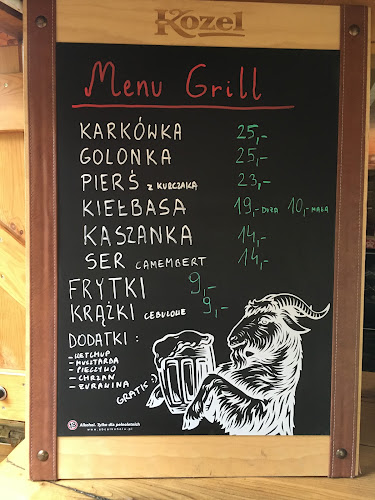 Kozel
Menu Grill
KARKÓWKA 25,-
GOLONKA 25,-
PIERŚ Z KURCZAKA 23,-
KIEŁBASA 19,- DUŻA 10,- MAŁA
KASZANKA 14,-
SER CAMEMBERT 14,-
FRYTKI 9,-
KRĄŻKI CEBULOWE 9,-
DODATKI :
- KETCHUP
- MUSZTARDA
- PIECZYWO
- CHRZAN
- ŻURAWINA
GRATIS :)
18 Alkohol. Tylko dla pełnoletnich